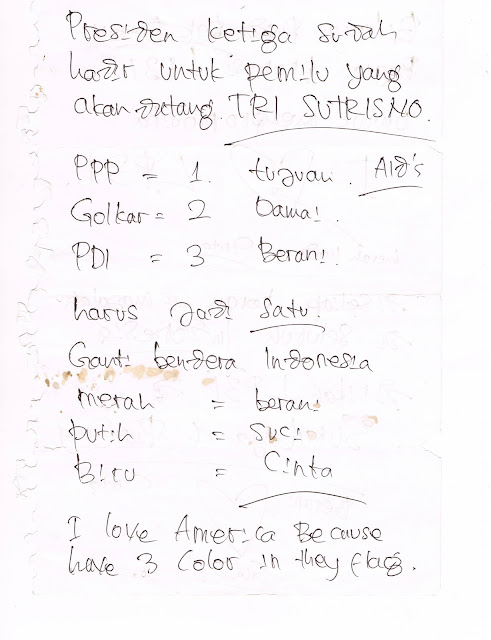 Presiden ketiga sudah
hadir untuk pemilu yang
akan datang. TRI SUTRISNO.
PPP = 1. tujuan. AID's
Golkar = 2 Damai.
PDI = 3 Berani.
harus jadi satu.
Ganti bendera Indonesia
merah = berani
putih = suci
Biru = Cinta
I love America Because
have 3 Color in they flag.